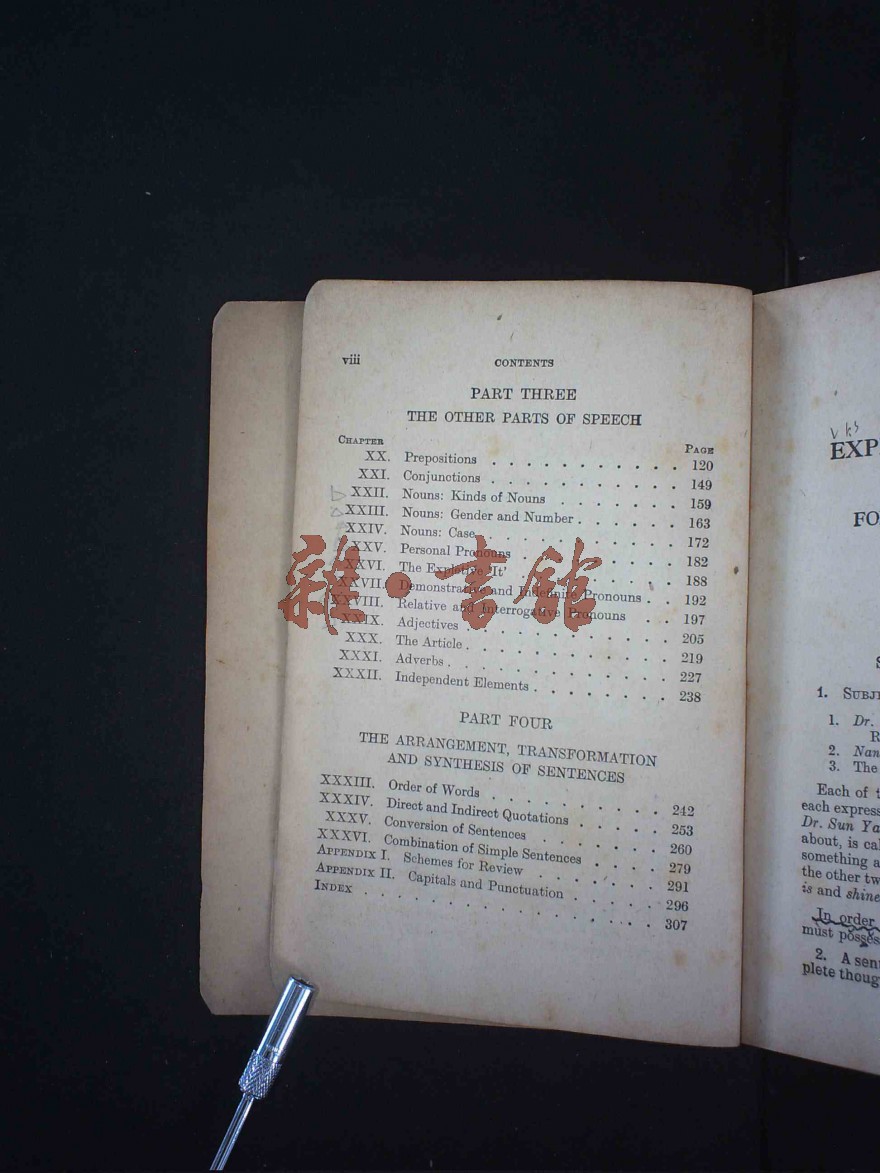 viii
CONTENTS
PART THREE
THE OTHER PARTS OF SPEECH
CHAPTER PAGE
XX. Prepositions . . . . . . . . . . . 120
XXI. Conjunctions . . . . . . . . . . . 149
XXII. Nouns: Kinds of Nouns . . . . . . . 159
XXIII. Nouns: Gender and Number . . . . . . 163
XXIV. Nouns: Case . . . . . . . . . . . 172
XXV. Personal Pronouns . . . . . . . . . 182
XXVI. The Expletive 'It' . . . . . . . . . 188
XXVII. Demonstrative and Indefinite Pronouns . . 192
XXVIII. Relative and Interrogative Pronouns . . 197
XXIX. Adjectives . . . . . . . . . . . 205
XXX. The Article . . . . . . . . . . . 219
XXXI. Adverbs . . . . . . . . . . . 227
XXXII. Independent Elements . . . . . . . . 238
PART FOUR
THE ARRANGEMENT, TRANSFORMATION
AND SYNTHESIS OF SENTENCES
XXXIII. Order of Words . . . . . . . . . . 242
XXXIV. Direct and Indirect Quotations . . . . . 253
XXXV. Conversion of Sentences . . . . . . . 260
XXXVI. Combination of Simple Sentences . . . . 279
APPENDIX I. Schemes for Review . . . . . . . 291
APPENDIX II. Capitals and Punctuation . . . . . 296
INDEX . . . . . . . . . . . . . . 307
雜·書館
EXP
FO
S
1. SUBJE
1. Dr.
R
2. Nan
3. The
Each of t
each express
Dr. Sun Ya
about, is cal
something a
the other tw
is and shine
In order
must possess
2. A sent
plete thoug